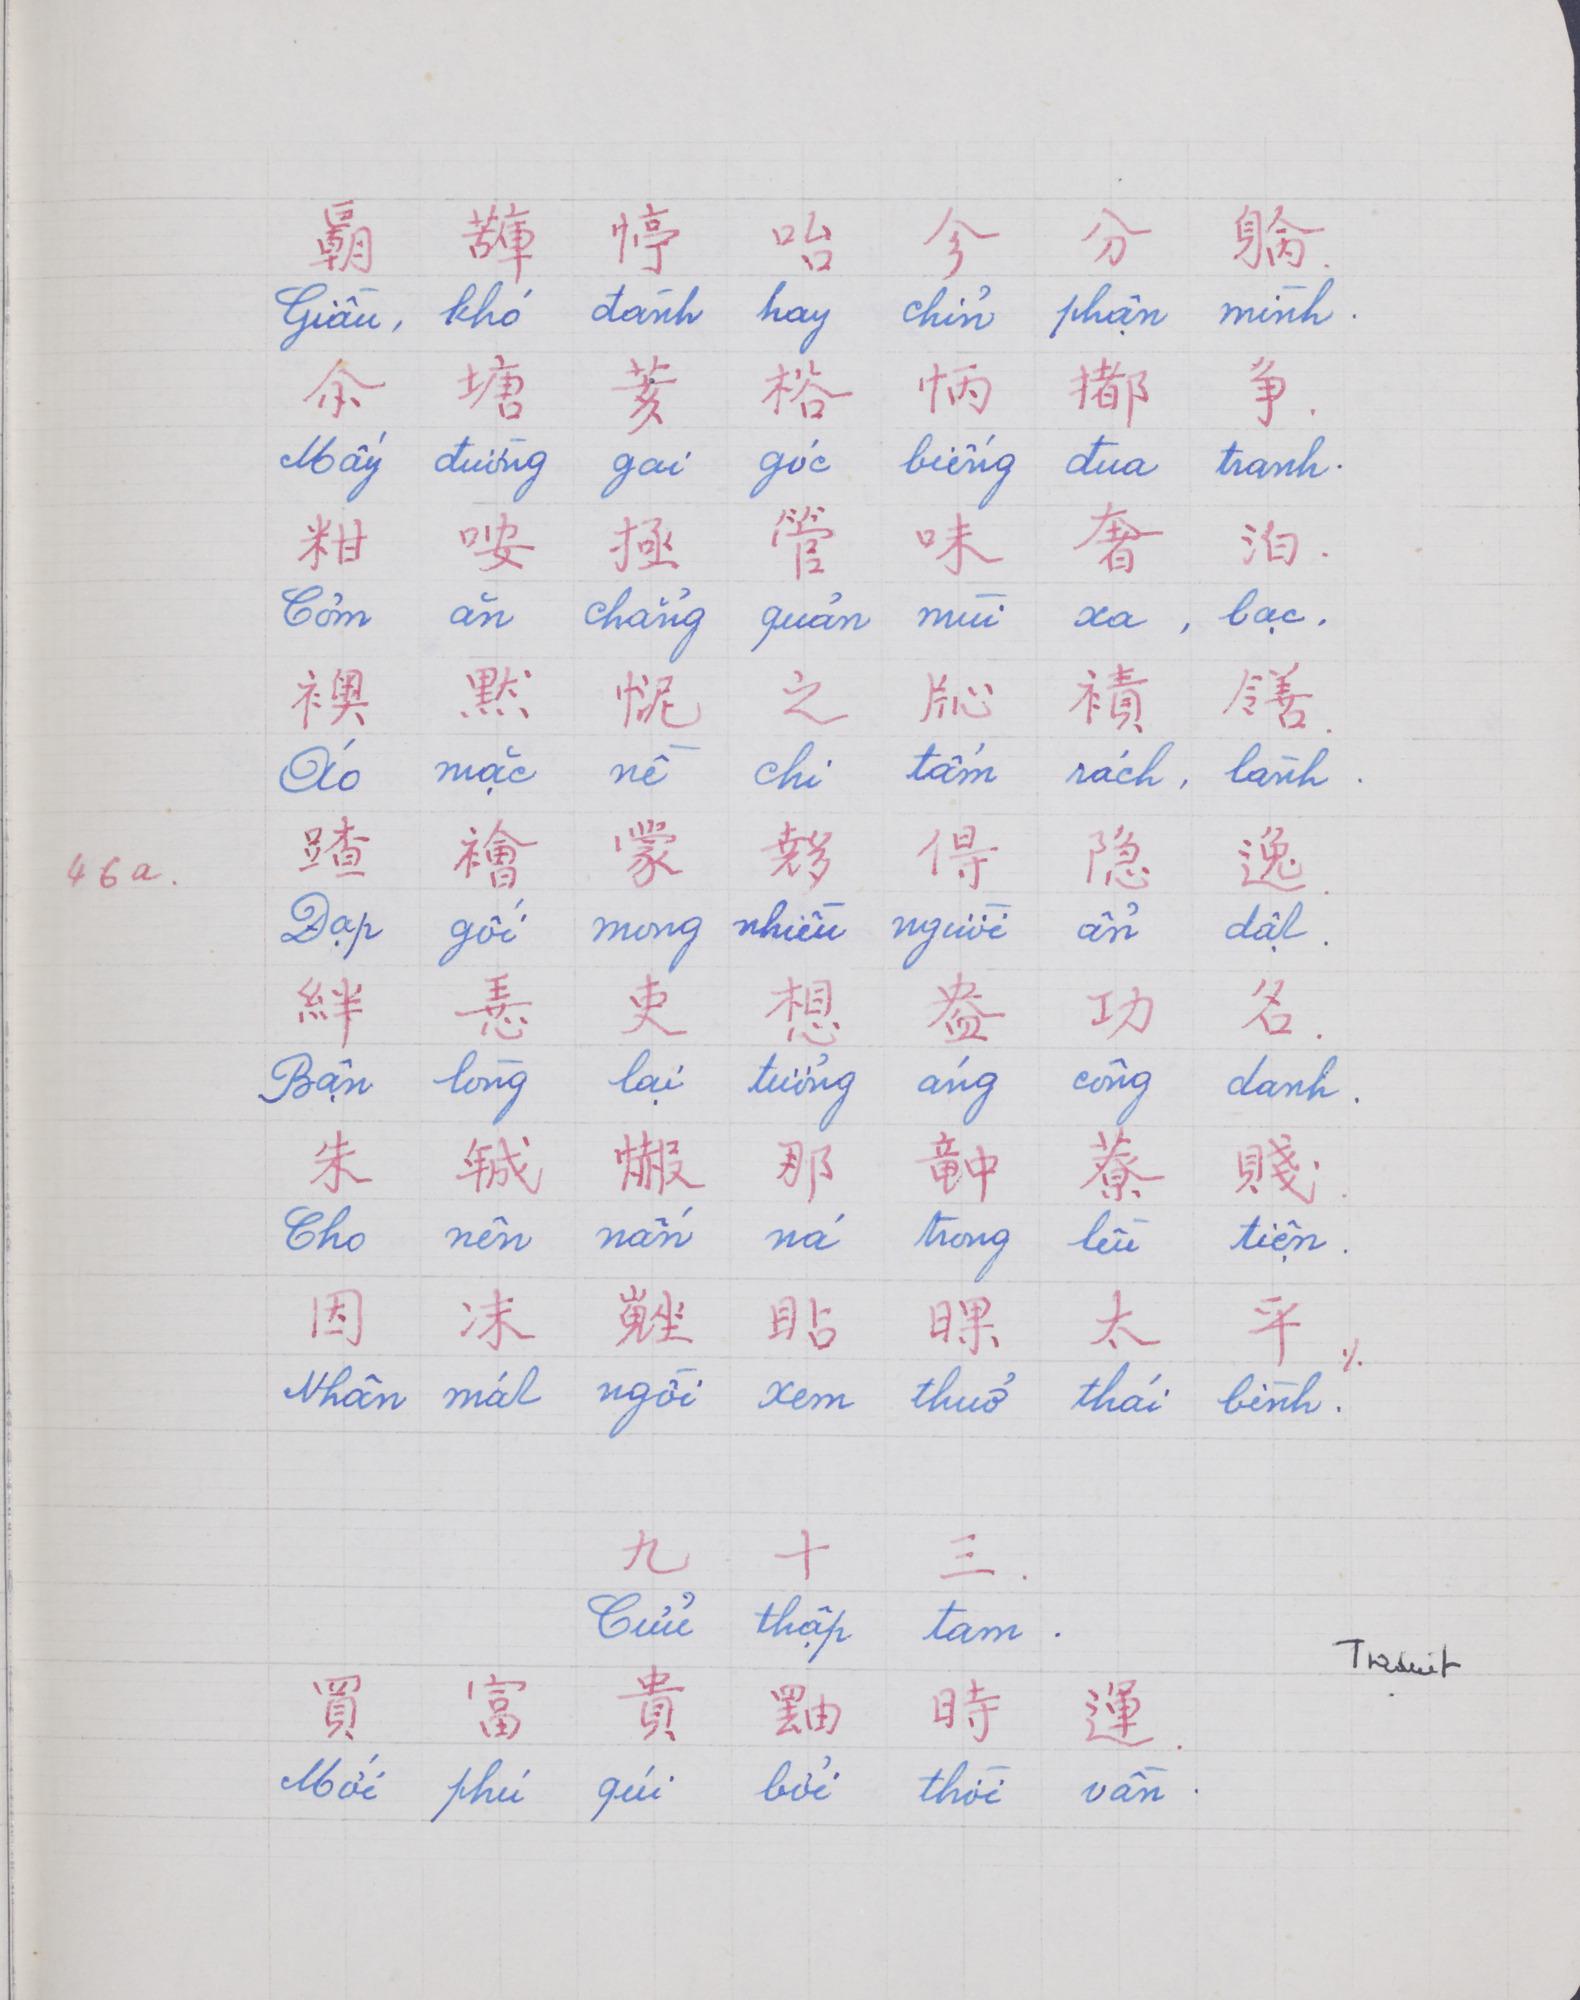 覇 𧁷 悙 咍 兮 分 躬.
Giầu, khó đành hay chỉn phận mình.
余 塘 荄 㭲 怲 擨 争.
Mấy đường gai góc biếng đua tranh.
粓 咹 拯 管 味 奢 泊.
Cơm ăn chẳng quản mùi xa, bạc.
襖 黙 怩 之 襀 鐥.
Áo mặc nề chi tấm rách, lành.
蹅 襘 得 隐 逸.
46a.
Đạp gối mong nhiều người ẩn dật.
絆 吏 想 盎 功 名.
Bận lòng lại tưởng áng công danh.
朱 𢧚 那 𥪝 賤.
Cho nên nấn ná trong lều tiện.
因 沫 𡎥 貼 𣋼 太 平 ٪.
Nhân mát ngồi xem thuở thái bình.
九 十 三.
Cửu thập tam.
買 富 貴 𪽝 時 運.
Mới phú qúi bởi thời vần.
Traduit